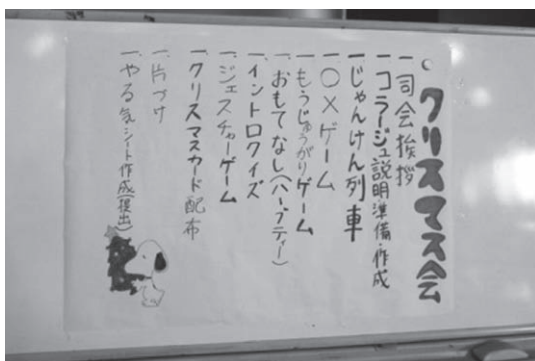 ○クリスマス会
一司会挨拶
一コラージュ説明準備・作成
一じゃんけん列車
一○×ゲーム
一もうじゅうがりゲーム
一おもてなし(ハーブティー)
一イントロクイズ
一ジェスチャーゲーム
一クリスマスカード配布
一片づけ
一やる気シート作成(提出)